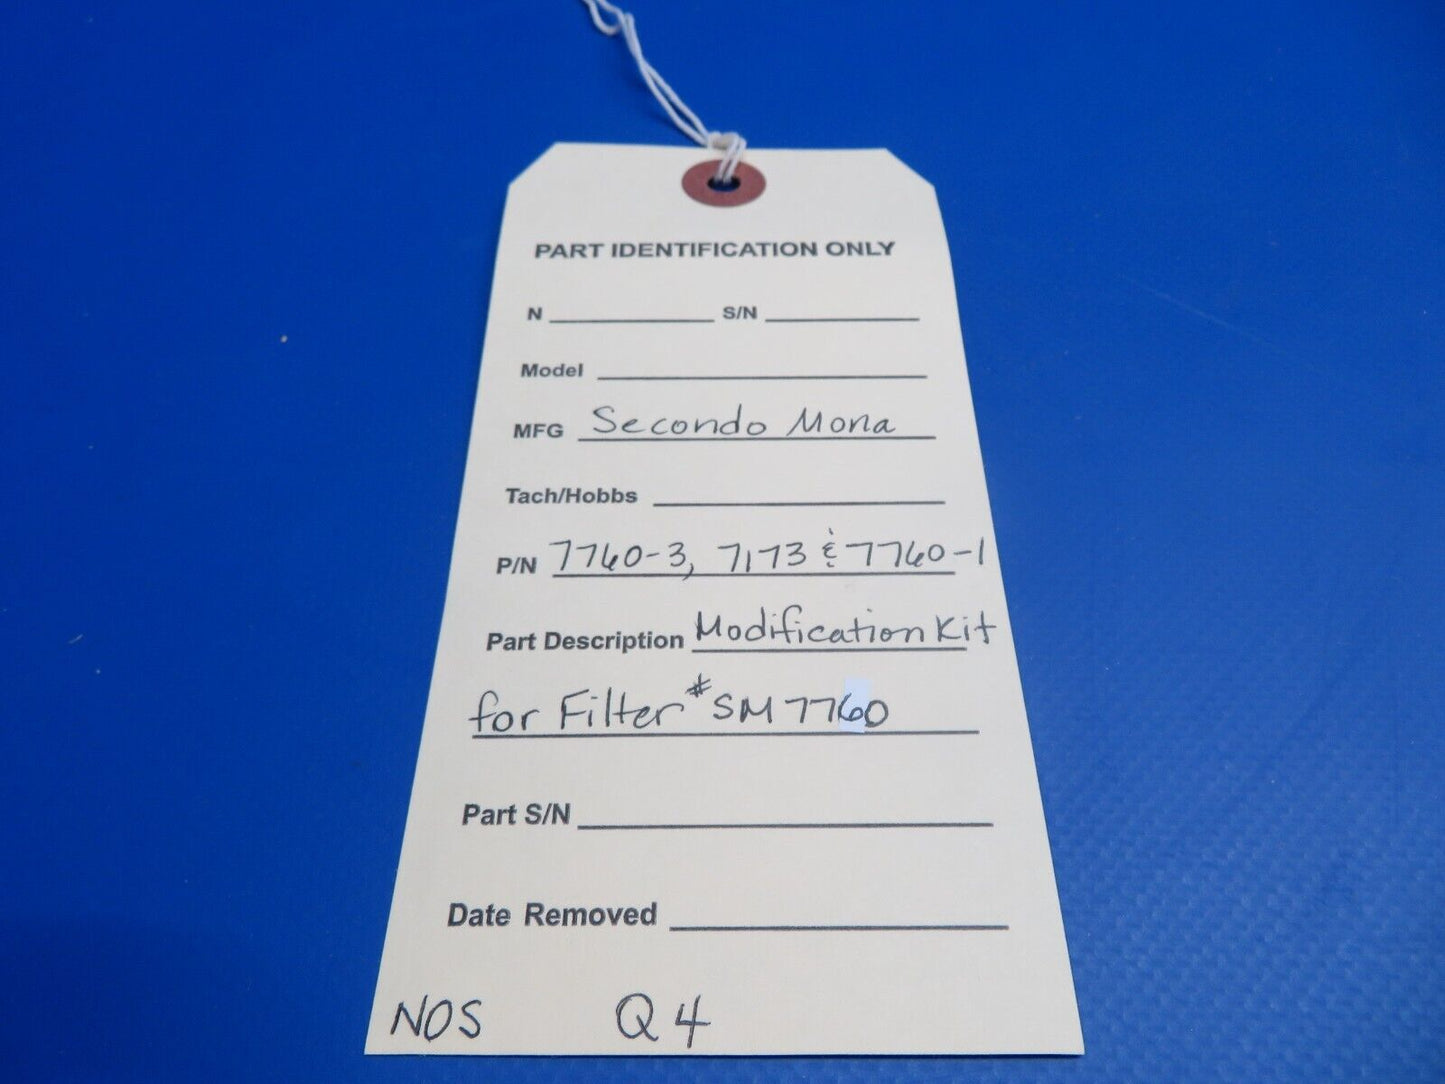 PART IDENTIFICATION ONLY
N S/N
Model
MFG Secondo Mona
Tach/Hobbs
P/N 7760-3, 7173 & 7760-1
Part Description Modification Kit
for Filter # SM 7760
Part S/N
Date Removed
NOS Q4